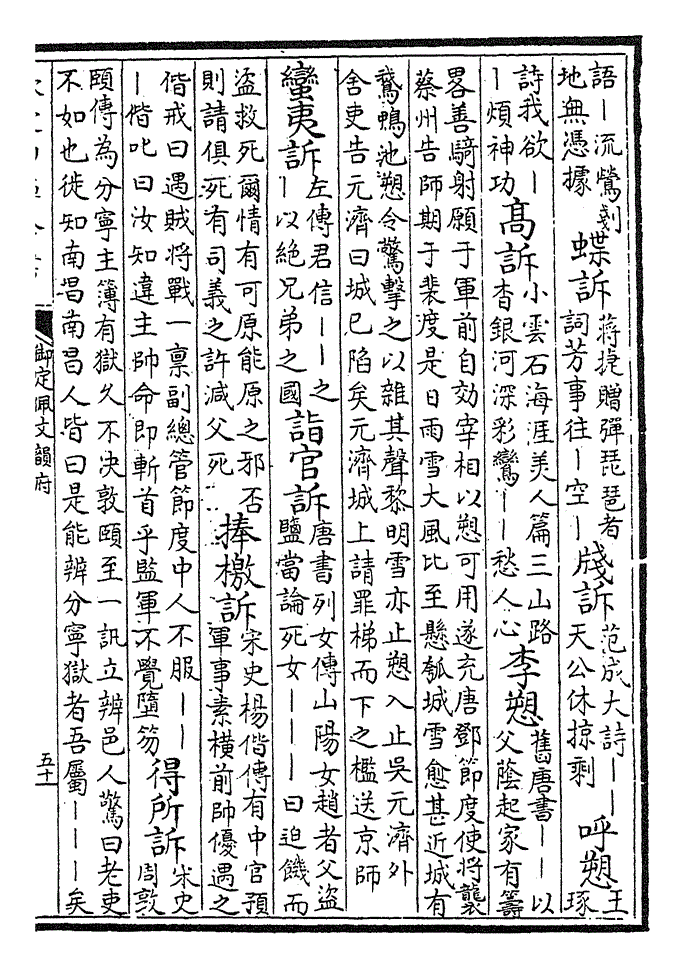 語｜流鶯剗地無憑據 蝶訴 蔣捷贈彈琵琶者詞芳事往｜空｜ 牋訴 范成大詩｜｜天公休掠剩 呼愬 王琢
詩我欲｜｜煩神功 高訴 小雲石海涯美人篇三山路杳銀河深彩鸞｜｜愁人心 李愬 舊唐書｜｜以父蔭起家有籌
畧善騎射願于軍前自効宰相以愬可用遂充唐鄧節度使將襲蔡州告師期于裴度是日雨雪大風比至懸瓠城雪愈甚近城有
鵞鴨池愬令驚擊之以雜其聲黎明雪亦止愬入止吳元濟外舍吏告元濟曰城已陷矣元濟城上請罪梯而下之檻送京師
蠻夷訴 左傳君信｜｜之｜以絶兄弟之國 詣官訴 唐書列女傳山陽女趙者父盜鹽當論死女｜｜｜曰迫饑而
盜救死爾情有可原能原之邪否則請俱死有司義之許減父死 捧檄訴 宋史楊偕傳有中官預軍事素橫前帥優遇之
偕戒曰遇賊將戰一禀副總管節度中人不服｜｜｜偕叱曰汝知違主帥命即斬首乎監軍不覺墮笏 得所訴 宋史周敦
頤傳為分寧主簿有獄久不决敦頤至一訊立辨邑人驚曰老吏不如也徙知南昌南昌人皆曰是能辨分寧獄者吾屬｜｜｜矣
御定佩文韻府
五十